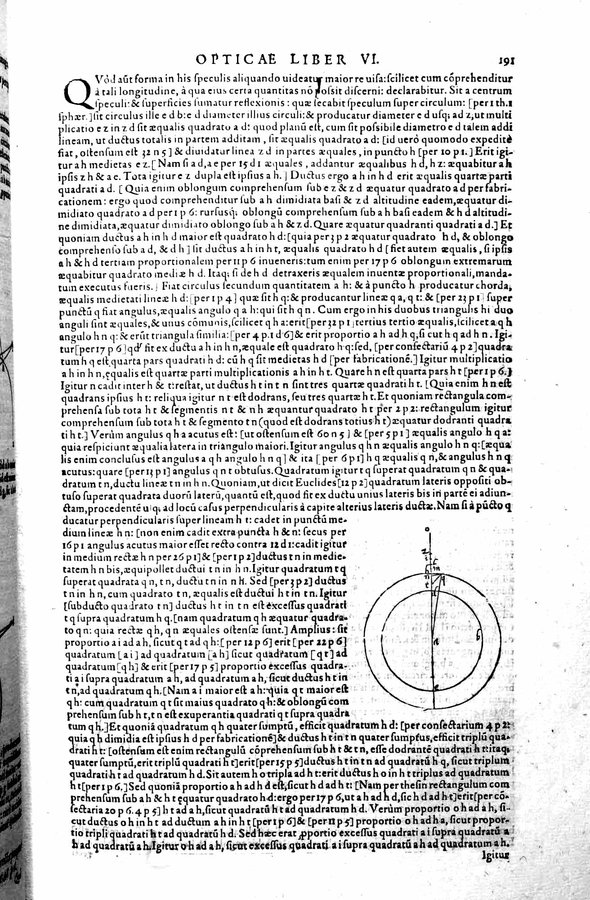 OPTICAE LIBER VI. 191
QVòd aũt forma in his speculis aliquando uideatur maior re uisa: scilicet cum cõprehenditur
à tali longitudine, à qua eius certa quantitas nõ possit discerni: declarabitur. Sit a centrum
speculi: & superficies sumatur reflexionis: quæ secabit speculum super circulum: [per 1 th. 1
sphær.] sit circulus ille e d b: e d diameter illius circuli: & producatur diameter e d usq; ad z, ut multi
plicatio e z in z d sit æqualis quadrato a d: quod planũ est, cum sit possibile diametro e d talem addi
lineam, ut ductus totalis in partem additam, sit æqualis quadrato a d: [id uerò quomodo expeditè
fiat, ostensum est 32 n 5] & diuidatur linea z d in partes æquales, in puncto h [per 10 p 1.] Erit igi-
tur a h medietas e z. [Nam si a d, a e per 15 d 1 æquales, addantur æqualibus h d, h z: æquabitur a h
ipsis z h & a e. Tota igitur e z dupla est ipsius a h.] Ductus ergo a h in h d erit æqualis quartæ parti
quadrati a d. [Quia enim oblongum comprehensum sub e z & z d æquatur quadrato a d per fabri-
cationem: ergo quod comprehenditur sub a h dimidiata basi & z d altitudine eadem, æquatur di-
midiato quadrato a d per 1 p 6: rursusq; oblongũ comprehensum sub a h basi eadem & h d altitudi-
ne dimidiata, æquatur dimidiato oblongo sub a h & z d. Quare æquatur quadranti quadrati a d.] Et
quoniam ductus a h in h d maior est quadrato h d: [quia per 3 p 2 æquatur quadrato h d, & oblongo
comprehenso sub a d, & d h] sit ductus a h in h t, æqualis quadrato h d [fiet autem æqualis, si ipsis
a h & h d tertiam proportionalem per 11 p 6 inueneris: tum enim per 17 p 6 oblongum extremarum
æquabitur quadrato mediæ h d. Itaq; si de h d detraxeris æqualem inuentæ proportionali, manda-
tum executus fueris.] Fiat circulus secundum quantitatem a h: & à puncto h producatur chorda,
æqualis medietati lineæ h d: [per 1 p 4] quæ sit h q: & producantur lineæ q a, q t: & [per 23 p 1] super
punctũ q fiat angulus, æqualis angulo q a h: qui sit h q n. Cum ergo in his duobus triangulis hi duo
anguli sint æquales, & unus cõmunis, scilicet q h a: erit [per 32 p 1] tertius tertio æqualis, scilicet a q h
angulo h n q: & erũt triangula similia: [per 4 p. 1 d 6] & erit proportio a h ad h q, si cut h q ad h n. Igi-
tur [per 17 p 6] qd' fit ex ductu a h in h n, æquale est quadrato h q: sed, [per consectariũ 4 p 2] quadra
tum h q est quarta pars quadrati h d: cũ h q sit medietas h d [per fabricationẽ.] Igitur multiplicatio
a h in h n, equalis est quartæ parti multiplicationis a h in h t. Quare h n est quarta pars h t [per 1 p 6.]
Igitur n cadit inter h & t: restat, ut ductus h t in t n sint tres quartæ quadrati h t. [Quia enim h n est
quadrans ipsius h t: reliqua igitur n t est dodrans, seu tres quartæ h t. Et quoniam rectangula com-
prehensa sub tota h t & segmentis n t & n h æquantur quadrato h t per 2 p 2: rectangulum igitur
comprehensum sub tota h t & segmento t n (quod est dodrans totius h t) æquatur dodranti quadra
ti h t.] Verùm angulus q h a acutus est: [ut ostensum est 60 n 5] & [per 5 p 1] æqualis angulo h q a:
quia respiciunt æqualia latera in triangulo maiori. Igitur angulus q h n æqualis angulo h n q: [æqua
lis enim conclusus est angulus a q h angulo h n q] & ita [per 6 p 1] h q æqualis q n, & angulus h n q
acutus: quare [per 13 p 1] angulus q n t obtusus. Quadratum igitur t q superat quadratum q n & qua-
dratum t n, ductu lineæ t n in h n. Quoniam, ut dicit Euclides [12 p 2] quadratum lateris oppositi ob-
tuso superat quadrata duorũ laterũ, quantũ est, quod fit ex ductu unius lateris bis in partẽ ei adiun-
ctam, procedentẽ uſq; ad locũ casus perpendicularis à capite alterius lateris ductæ. Nam si à pũcto q
ducatur perpendicularis super lineam h t: cadet in punctũ me-
dium lineæ h n: [non enim cadit extra puncta h & n: secus per
16 p 1 angulus acutus maior esset recto contra 12 d 1: cadit igitur
in medium rectæ h n per 26 p 1] & [per 1 p 2] ductus t n in medie-
tatem h n bis, æquipollet ductui t n in h n. Igitur quadratum t q
superat quadrata q n, t n, ductu t n in n h. Sed [per 3 p 2] ductus
t n in h n, cum quadrato t n, æqualis est ductui h t in t n. Igitur
[subducto quadrato t n] ductus h t in t n est excessus quadrati
t q supra quadratum h q. [nam quadratum q h æquatur quadra-
to q n: quia rectæ q h, q n æquales ostensæ sunt.] Amplius: sit
proportio a i ad a h, sicut q t ad q h: [per 12 p 6] erit [per 22 p 6]
quadratum [a i] ad quadratum [a h] sicut quadratum [q t] ad
quadratum [q h] & erit [per 17 p 5] proportio excessus quadra-
ti a i supra quadratum a h, ad quadratum a h, sicut ductus h t in
t n, ad quadratum q h. [Nam a i maior est a h: quia q t maior est
q h: cum quadratum q t sit maius quadrato q h: & oblongũ com
prehensum sub h t, t n est exuperantia quadrati q t supra quadra
tum q h.] Et quoniã quadratum q h quater sumptũ, efficit quadratum h d: [per consectarium 4 p 2:
quia q h dimidia est ipsius h d per fabricationẽ] & ductus h t in t n quater sumptus, efficit triplũ qua-
drati h t: [ostensum est enim rectangulũ cõprehensum sub h t & t n, esse dodrantẽ quadrati h t: itaq;
quater sumptũ, erit triplũ quadrati h t] erit [per 15 p 5] ductus h t in t n ad quadratũ h q, sicut triplum
quadrati h t ad quadratum h d. Sit autem h o tripla ad h t: erit ductus h o in h t triplus ad quadratum
h t [per 1 p 6.] Sed quoniã proportio a h ad h d est, sicut h d ad h t: [Nam per thesin rectangulum com
prehensum sub a h & h t equatur quadrato h d: ergo per 17 p 6, ut a h ad h d, sic h d ad h t] erit [per cõ-
sectaria 20 p 6. 4 p 5] h t ad a h, sicut quadratũ h t ad quadratum h d. Verùm proportio o h ad a h, si-
cut ductus o h in h t ad ductum a h in h t [per 1 p 6] & [per 11 p 5] proportio o h ad a h, sicut propor-
tio tripli quadrati h t ad quadratũ h d. Sed hæc erat ꝓportio excessus quadrati a i supra quadratũ a
h ad quadratũ a h. Igitur o h ad a h, sicut excessus quadrati a i supra quadratũ a h ad quadratum a h.
Igitur